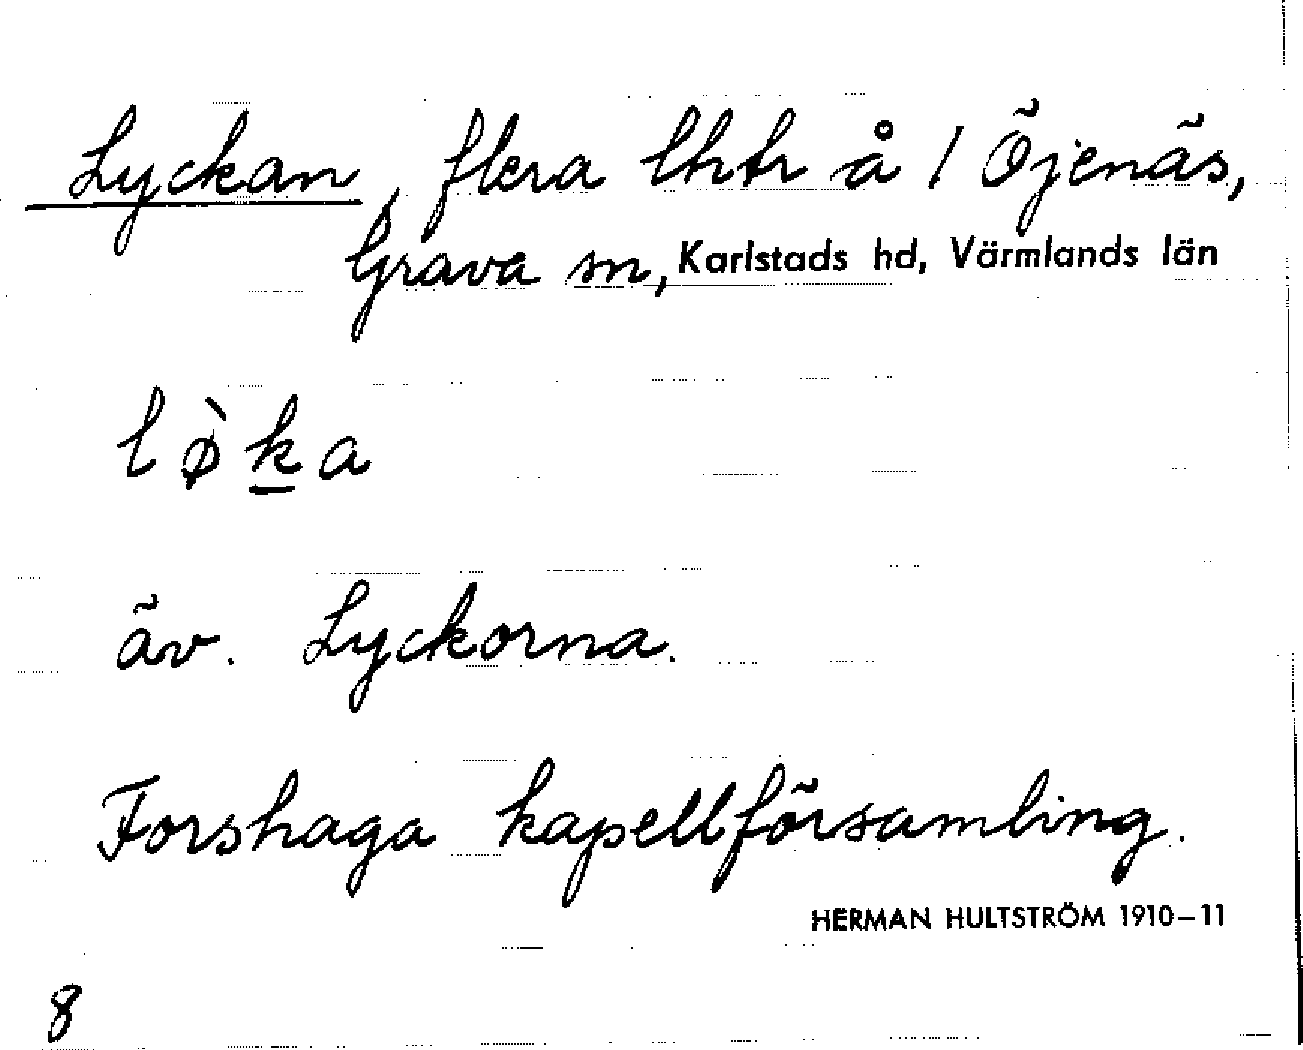 Lyckan, flera lhtr å 1 Öjenäs,
Grava sn, Karlstads hd, Värmlands län
lø̀ḵa
äv. Lyckorna.
Forshaga kapellförsamling.
HERMAN HULTSTRÖM 1910–11
8